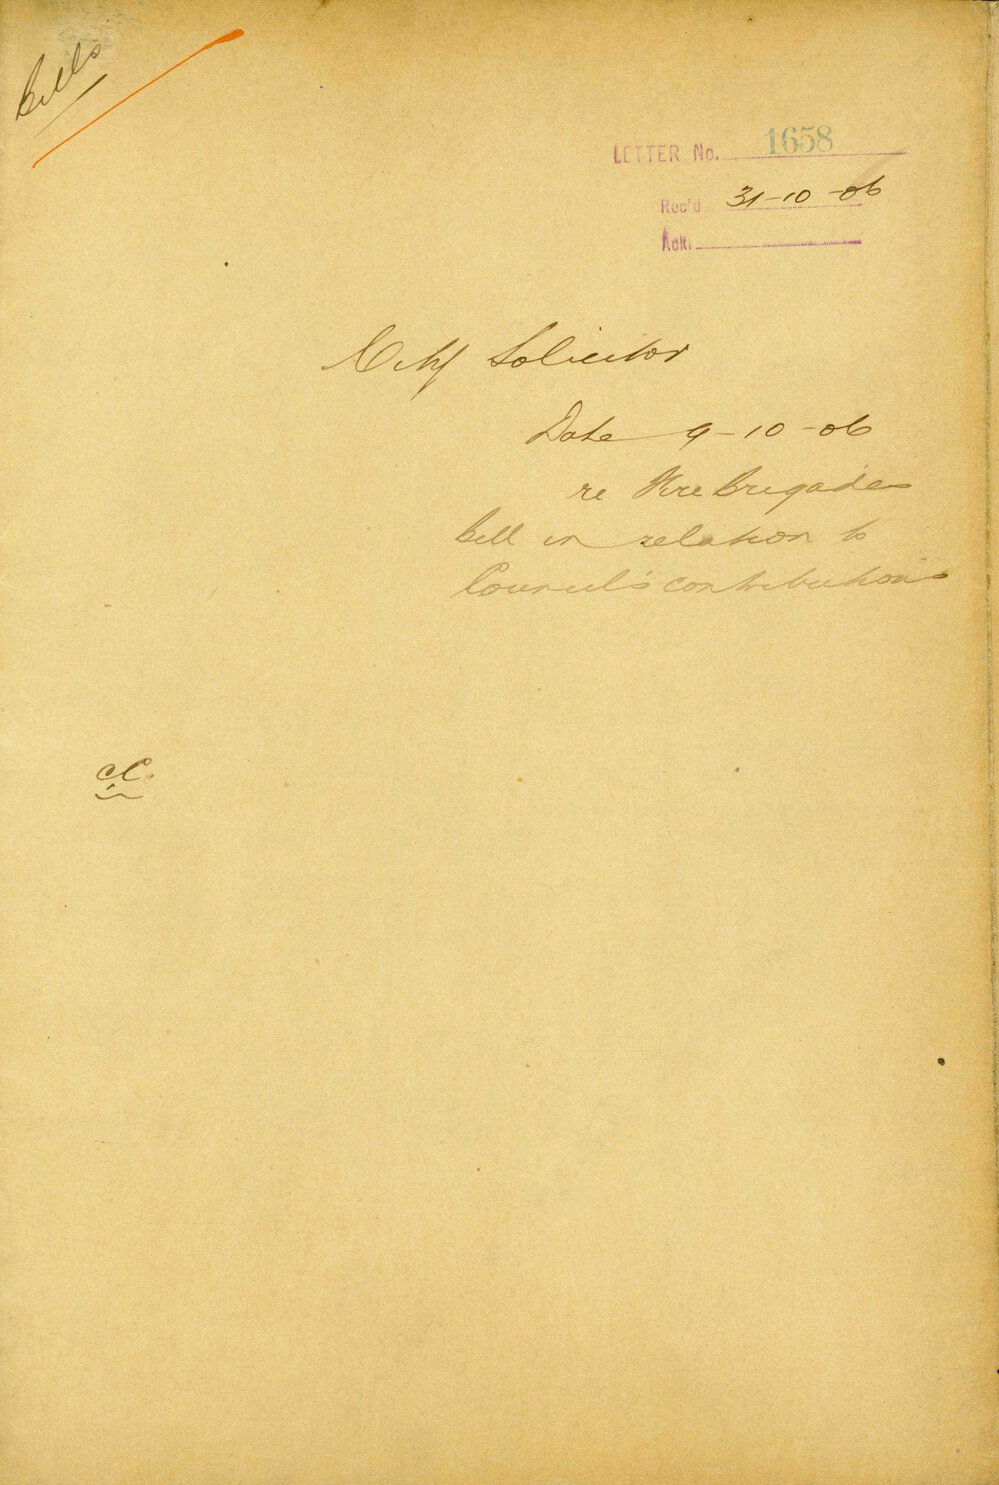 Bills
LETTER No. 1658
Rec'd 31-10-06
Ack.
City Solicitor
Date 9-10-06
re Fire Brigades
Bill in relation to
Council's contributions